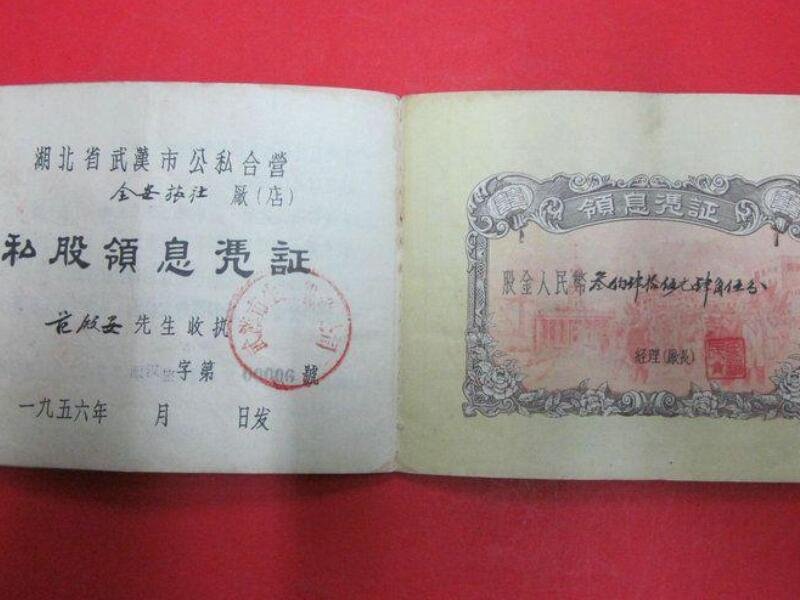 湖北省武漢市公私合营
全安旅社 厰(店)
私股領息憑証
范啟安 先生收执
字第 00006 號
一九五六年 月 日发
領息憑証
股金人民幣叁佰肆拾伍元肆角伍分
経理(厰長)